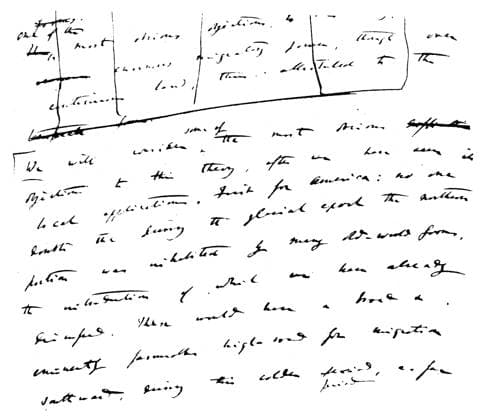 one of the
most obvious objection, to
enormous migratory power, though over
continuous land, thus attributed to the
We will consider some of the most obvious
objections to this theory, after we have seen its
local applications. First for America: no one
doubts that during the glacial epoch the northern
portion was inhabited by many old-world forms,
the introduction of which we have already
discussed. There would have a broad &
eminently favourable high road for migration
southward, during this colder period, as far
period